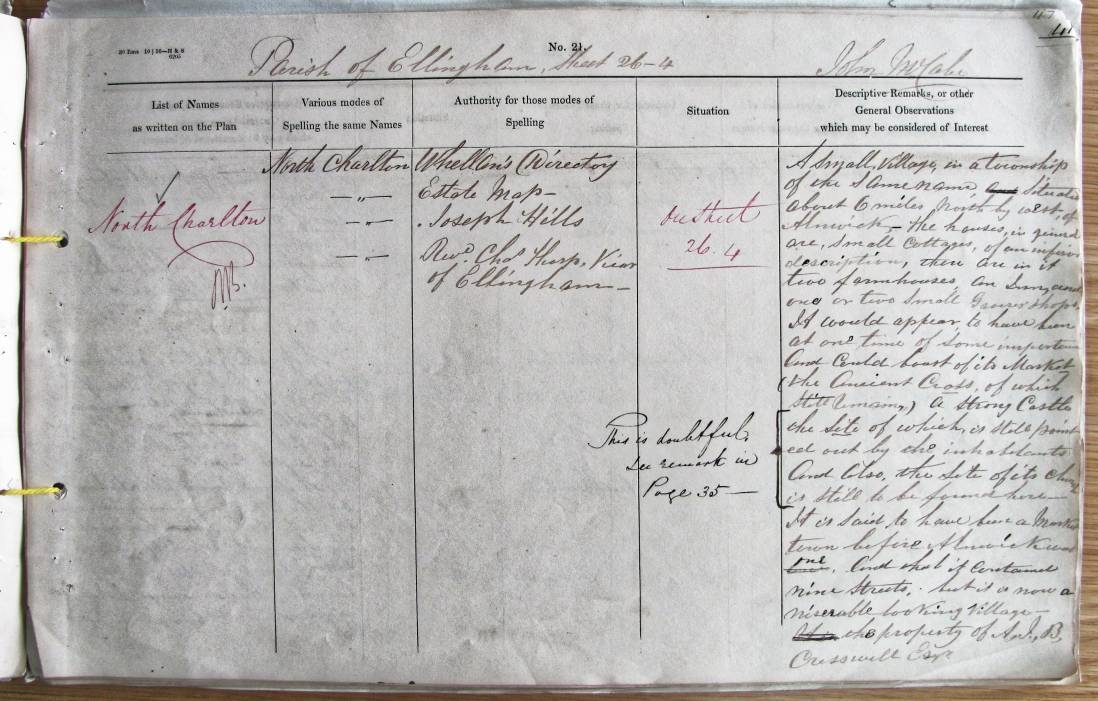 20 Rms 10|56—H & S
6205
No. 21.
41
Parish of Ellingham, Sheet 26-4
John McCabe
List of Names
as written on the Plan
Various modes of
Spelling the same Names
Authority for those modes of
Spelling
Situation
Descriptive Remarks, or other
General Observations
which may be considered of Interest
North Charlton
North Charlton
Whellan's Directory
— " —
Estate Map —
— " —
Joseph Hills
— " —
Revd. Chas. Thorp, Vicar
of Ellingham —
On Sheet
26.4
A small village, in a township
of the same name and situated
about 6 miles, North by west, of
Alnwick, — the houses, in general
are, small cottages, of an inferior
description, there are in it
two farmhouses, an Inn, and
one or two small Grocer shops,
It would appear, to have been
at one time of some importance
And could boast of its Market
(the Ancient Cross, of which
still remains,) A strong Castle
the site of which, is still point
ed out by the inhabitants
And also, the site of its church
is still to be found here —
It is said to have been a Market
town before Alnwick was
one, And that it contained
nine Streets, but it is now a
miserable looking village —
the property of A. J. B.
Cresswell Esqr
This is doubtful,
See remark in
Page 35 —